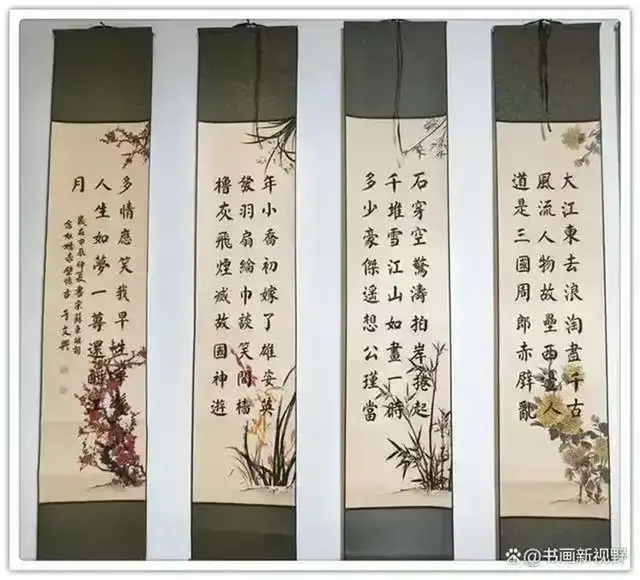 大江東去浪淘盡千古
風流人物故壘西邊人
道是三國周郎赤壁亂
石穿空驚濤拍岸捲起
千堆雪江山如畫一時
多少豪傑遙想公瑾當
年小喬初嫁了雄姿英
發羽扇綸巾談笑間檣
櫓灰飛煙滅故國神遊
多情應笑我早
人生如夢一尊還
月
歲在甲辰仲夏書宋蘇東坡詞
念奴嬌赤壁懷古 于文興
@书画新视野